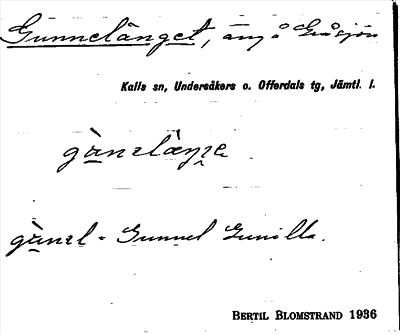 Gunnelänget, äng å Gåsjön
Kalls sn, Undersåkers o. Offerdals tg, Jämtl. l.
gùnelæŋe
gùnel - Gunnel Gunilla.
BERTIL BLOMSTRAND 1936